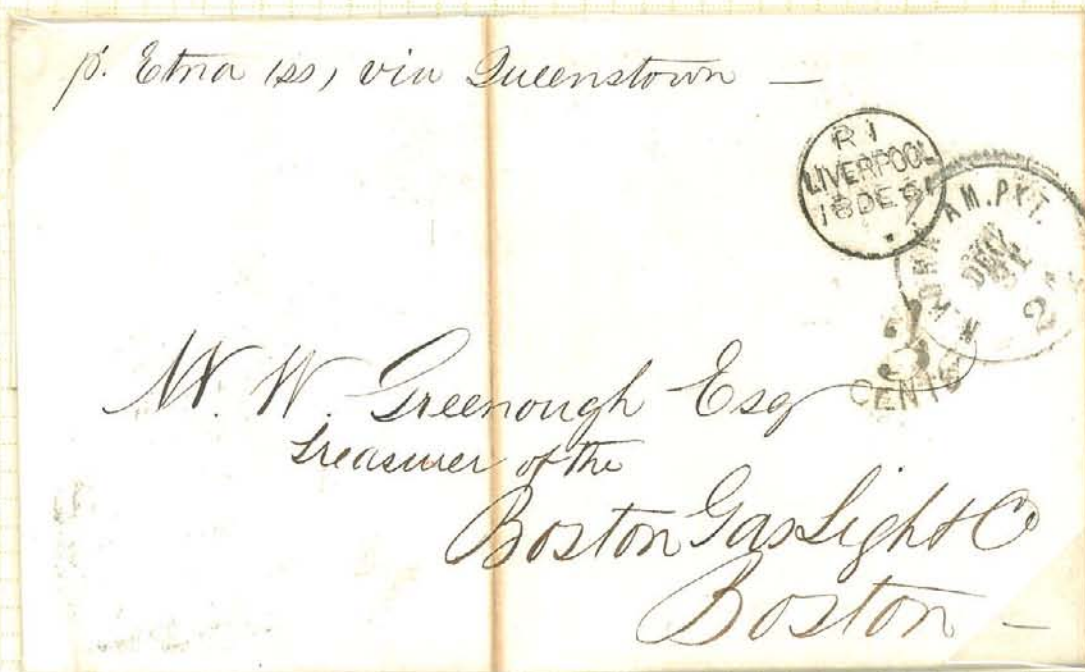 p. Etna (ss) via Queenstown —
R 1
LIVERPOOL
18 DE 61
N. YORK AM. PKT.
DEC
31
3
CENTS
W. W. Greenough Esq
Treasurer of the
Boston Gas Light Co
Boston —